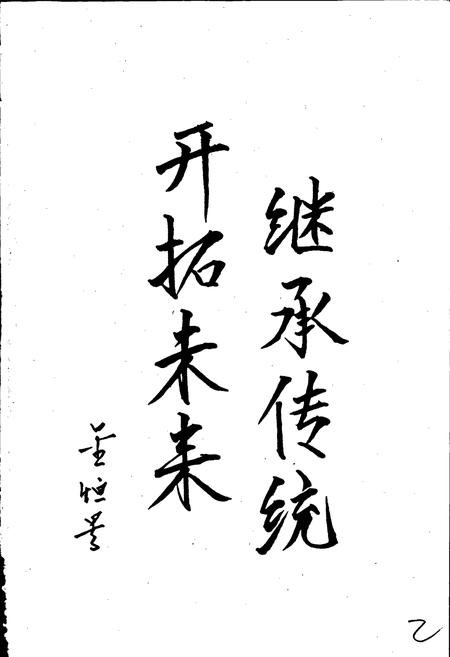 继承传统
开拓未来
金恒景
乙